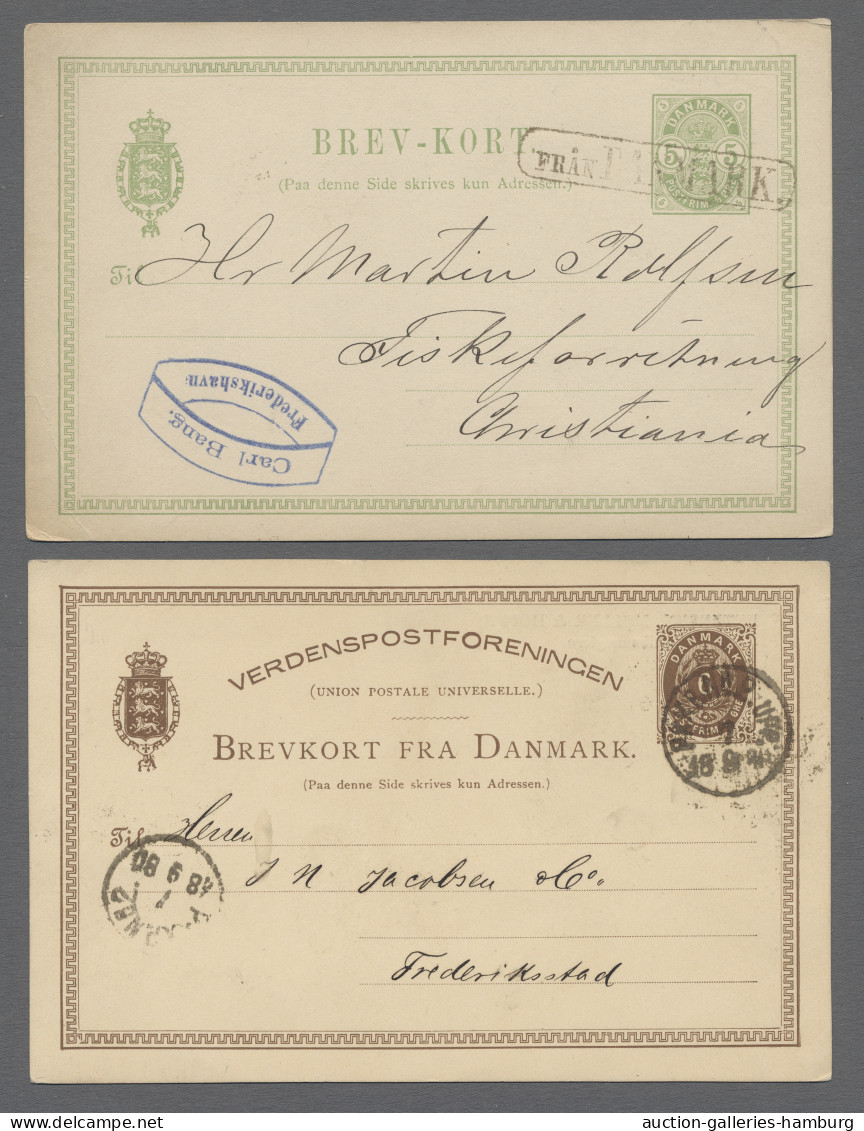 BREV-KORT
(Paa denne Side skrives kun Adressen.)
DANMARK
5 5
FRÅN DANMARK
Til Hr Martin Rolfsen
Fiskeforretning
Christiania
Carl Bang.
Frederikshavn
VERDENSPOSTFORENINGEN
(UNION POSTALE UNIVERSELLE.)
BREVKORT FRA DANMARK.
(Paa denne Side skrives kun Adressen.)
DANMARK
Til Herren
I N Jacobsen & Co.
Frederiksstad
auction-galleries-hamburg